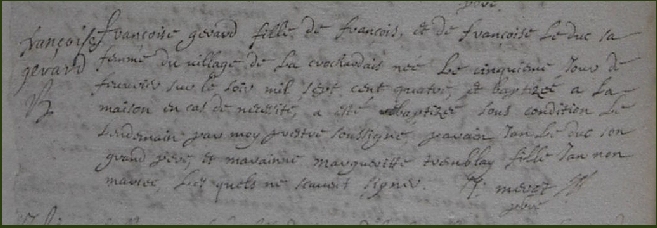 françoise
gerard
B
françoise gerard fille de françois, et de francoise Le duc sa
femme du village de La crochardais nee Le cinquieme Jour de
feuvrier sur le soir mil sept cent quatre, et baptizée a La
maison en cas de necesité, a esté baptizée sous condition Le
Lendemain par moy prestre soussigne parain Jan Le duc son
grand pere, et maraine marguerite tremblay fille Jan non
mariee, Les quels ne scavent signer.